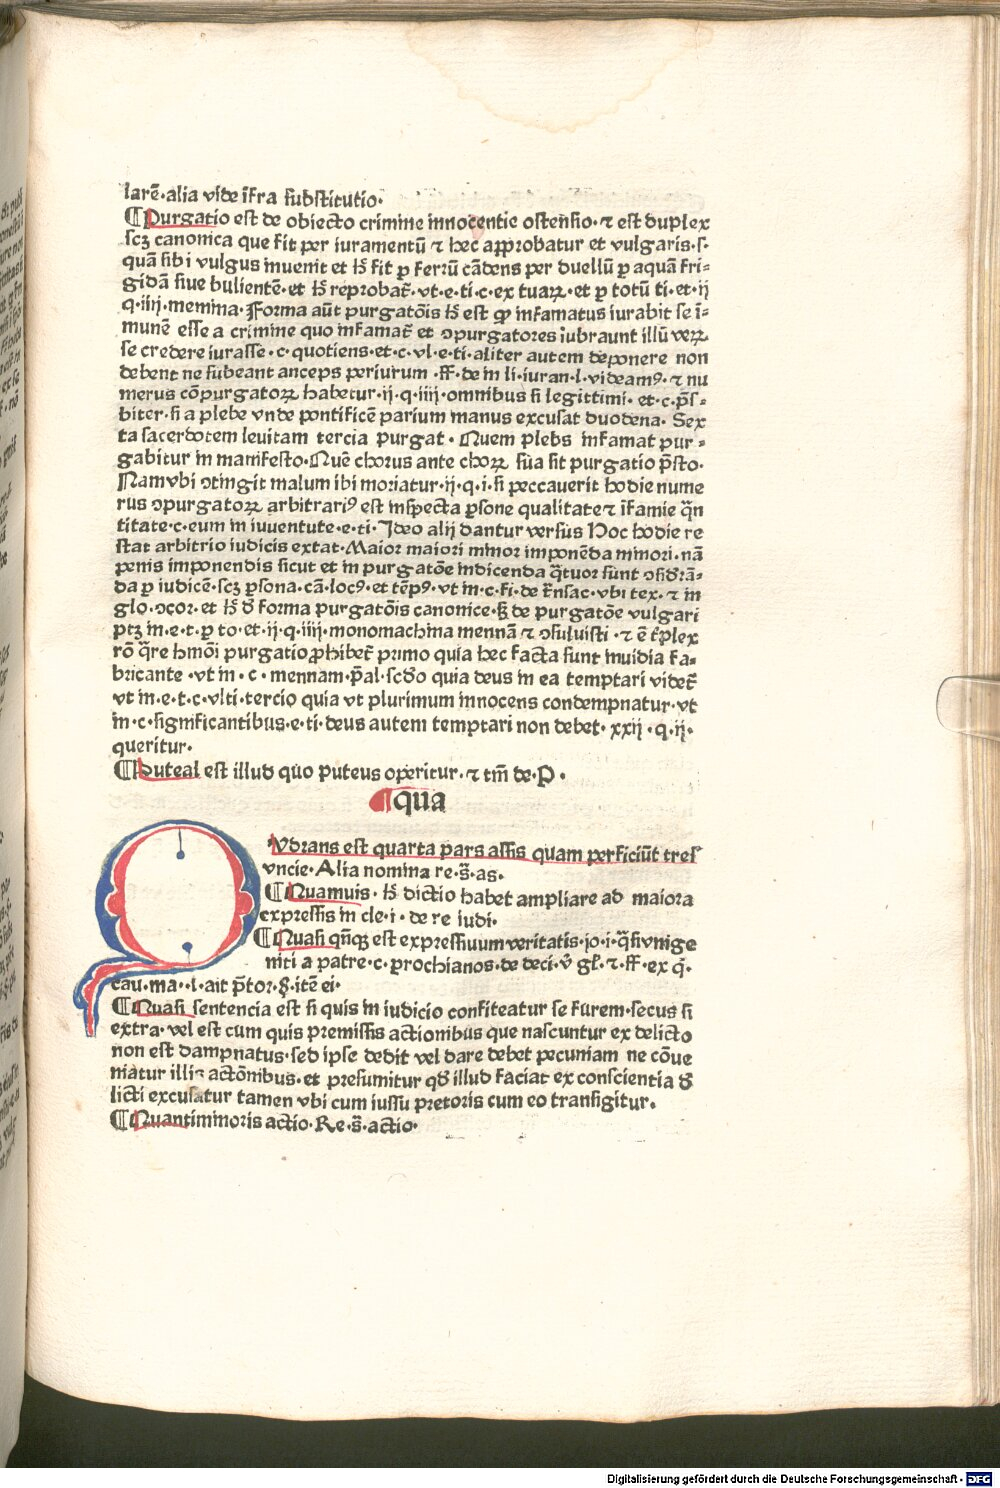 larē·alia vide īfra substitutio·
¶Purgatio est de obiecto crimine innocentie ostensio·⁊ est duplex
scꝫ canonica que fit per iuramentū ⁊ hec approbatur et vulgaris·s·
quā sibi vulgus inuenit et hꝫ fit ꝑ ferrū cādens per duellū ꝑ aquā fri⸗
gidā siue bulientē·et hꝫ reprobat̄·vt·e·ti·c·ex tuaꝝ·et ꝑ totū ti·et·ij
q·iiij·memina·Forma aūt purgatōis hꝫ est ꝙ infamatus iurabit se ī⸗
munē esse a crimine quo infamat̄ et ꝯpurgatores iubraunt illū veꝝ
se credere iurasse·c·quotiens·et·c·vl·e·ti·aliter autem deponere non
debent ne subeant anceps periurum·ff·de in li·iuran·l·videamꝰ·⁊ nu
merus cōpurgatoꝝ habetur·ij·q·iiij·omnibus si legittimi·et·c·p̄s⸗
biter·si a plebe vnde pontificē parium manus excusat duodena·Sex
ta sacerdotem leuitam tercia purgat·Quem plebs infamat pur⸗
gabitur in manifesto·Quē chorus ante choꝝ sua sit purgatio p̄sto·
Nam vbi ꝯtingit malum ibi moriatur·ij·q·i·si peccauerit hodie nume
rus ꝯpurgatoꝝ arbitrariꝰ est inspecta ꝑsone qualitate ⁊ īfamie q̄n
titate·c·cum in iuuentute·e·ti·Ideo alij dantur versus Hoc hodie re
stat arbitrio iudicis extat·Maior maiori minor imponēda minori·nā
penis imponendis sicut et in purgatōe indicenda q̄tuor sunt ꝯsid̄rā⸗
da ꝑ iudicē·scꝫ ꝑsona·cā·locꝰ·et tēpꝰ·vt in·c·fi·de t̄nsac·vbi tex·⁊ in
glo·ꝯcor·et hꝫ d̄ forma purgatōis canonice·sꝫ de purgatōe vulgari
ptꝫ in·e·t·ꝑ to·et·ij·q·iiij·monomachina mennā ⁊ ꝯsuluisti·⁊ ē t̄plex
rō q̄re hmōi purgatio ꝓhibet̄ primo quia hec facta sunt inuidia fa⸗
bricante·vt in·c·mennam·p̄al·scd̄o quia deus in ea temptari videt̄
vt in·e·t·c·vlti·tercio quia vt plurimum innocens condempnatur·vt
in·c·significantibus·e·ti·deus autem temptari non debet·xxij·q·ij·
queritur·
¶Puteal est illud quo puteus operitur·⁊ tm̄ de·P·
¶qua
QVdrans est quarta pars assis quam perficiūt tres
vncie·Alia nomina re·s̄·as·
¶Quamuis·hꝫ dictio habet ampliare ad maiora
expressis in cle·i·de re iudi·
¶Quasi qn̄qꝫ est expressiuum veritatis·jo·i·q̄si vnige
niti a patre·c·prochianos·de deci·v̄ gl̄·⁊·ff·ex q̄·
cau·ma·l·ait p̄tor·§·itē ei·
¶Quasi sentencia est si quis in iudicio confiteatur se furem·secus si
extra·vel est cum quis premissis actionibus que nascuntur ex delicto
non est dampnatus·sed ipse dedit vel dare debet pecuniam ne cōue
niatur illis actōnibus·et presumitur qd̄ illud faciat ex conscientia d̄
licti excusatur tamen vbi cum iussu pretoris cum eo transigitur·
¶Quantiminoris actio·Re·s̄·actio·
Digitalisierung gefördert durch die Deutsche Forschungsgemeinschaft - DFG